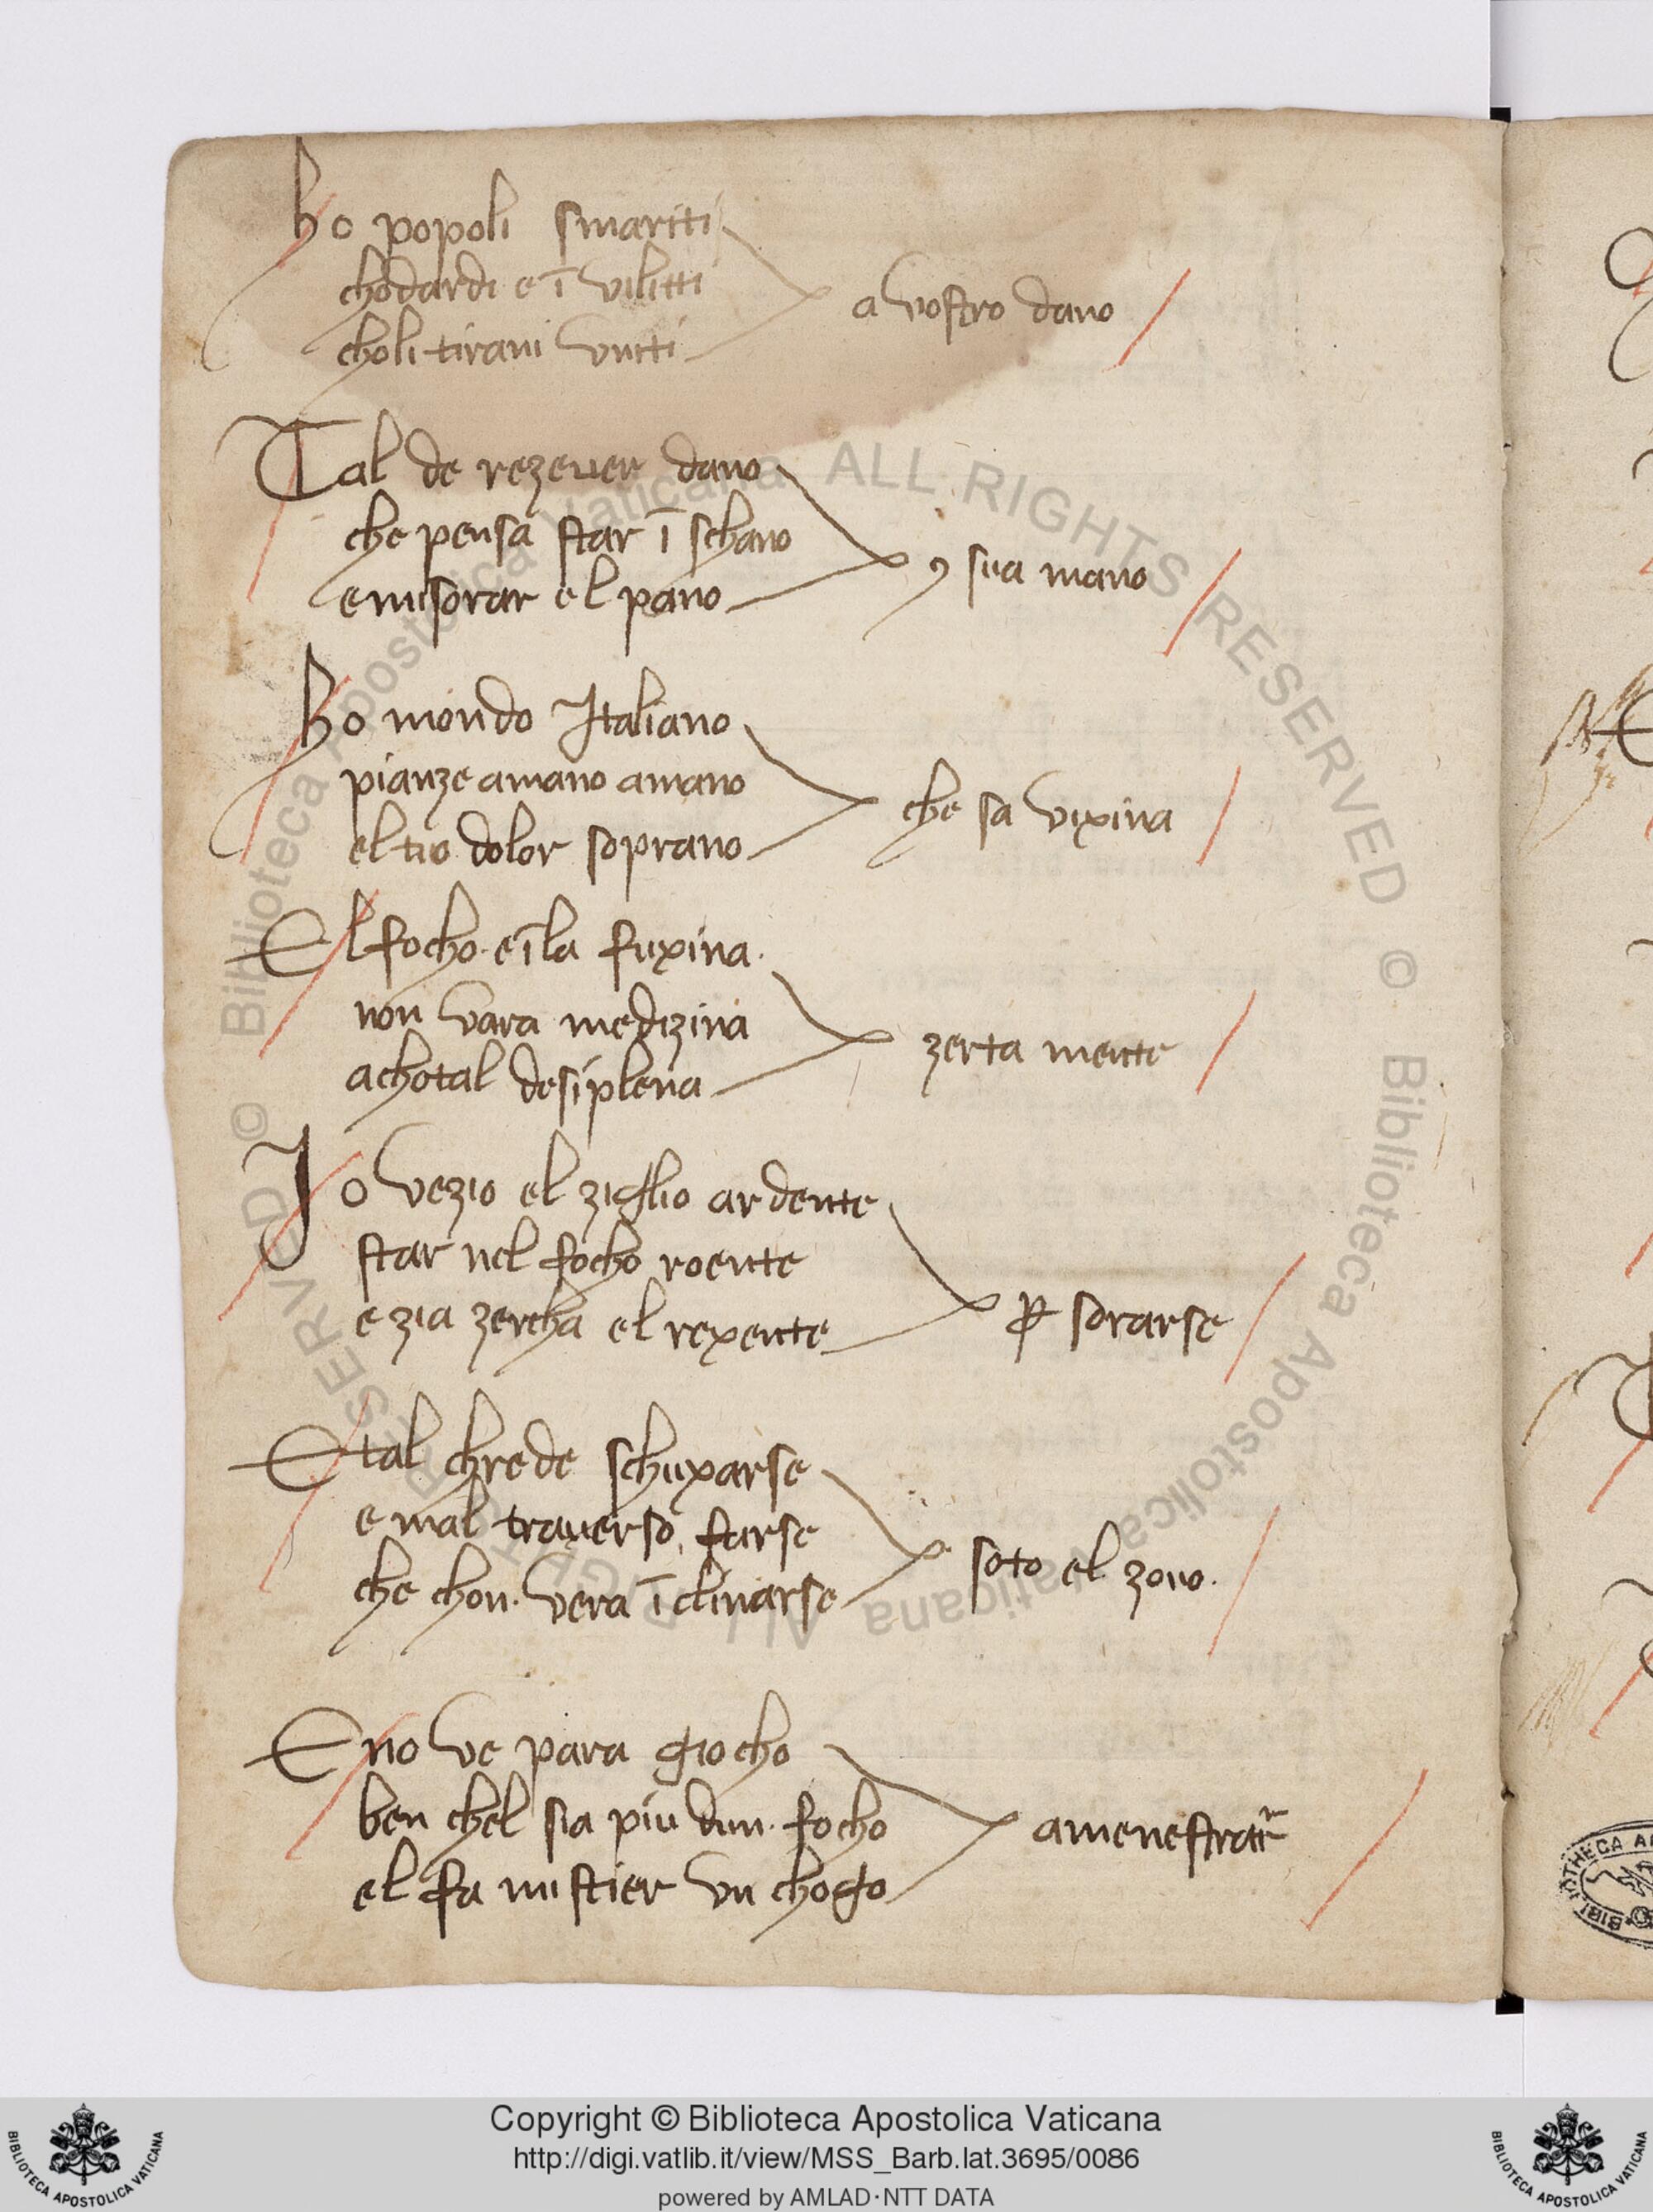 ho popoli smariti
chodardi e ī vilitti
choli tirani vniti
a vostro dano
Tal de rezever dano
che pensa star ī schano
e misorar el pano
ꝯ sua mano
ho mondo Italiano
pianze amano amano
el tuo dolor soprano
che sa vixina
El focho e ī la fuxina
non vara medizina
achotal desiplena
zerta mente
Io vezio el ziglio ardente
star nel focho roente
e zia zercha el rexente
ꝑ sorarse
E tal chrede schuxarse
e mal traverso farse
che chon vera ī clinarse
soto el zovo.
E no ve para giocho
ben chel sia piu dun focho
el fa mistier vn chogo
amenestrar
© Biblioteca Apostolica Vaticana ALL RIGHTS RESERVED
© Biblioteca Apostolica Vaticana ALL RIGHTS RESERVED
Copyright © Biblioteca Apostolica Vaticana
http://digi.vatlib.it/view/MSS_Barb.lat.3695/0086
powered by AMLAD·NTT DATA
BIBLIOTECA APOSTOLICA VATICANA
BIBLIOTECA APOSTOLICA VATICANA